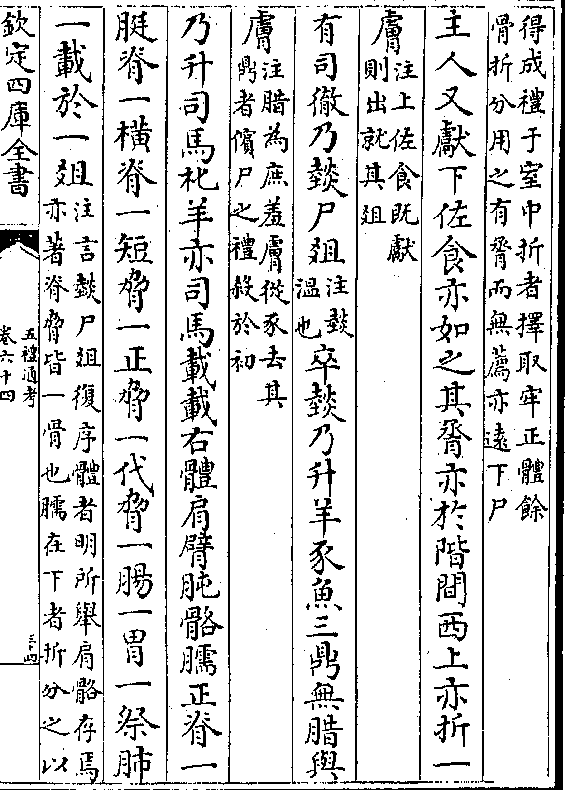 得成禮于室中折者擇取牢正體餘
骨折分用之有脀而無薦亦遠下尸
主人又獻下佐食亦如之其脀亦於階間西上亦折一
膚注上佐食既獻
則出就其俎
有司徹乃燅尸俎注燅
溫也卒燅乃升羊豕魚三鼎無腊與
膚注腊為庶羞膚從豕去其
鼎者儐尸之禮殺於初
乃升司馬朼羊亦司馬載載右體肩臂肫骼臑正脊一
脡脊一橫脊一短脅一正脅一代脅一腸一胃一祭肺
一載於一俎注言燅尸俎復序體者明所舉肩骼存焉
亦著脊脅皆一骨也臑在下者折分之以
欽定四庫全書
五禮通考
卷六十四
三十四